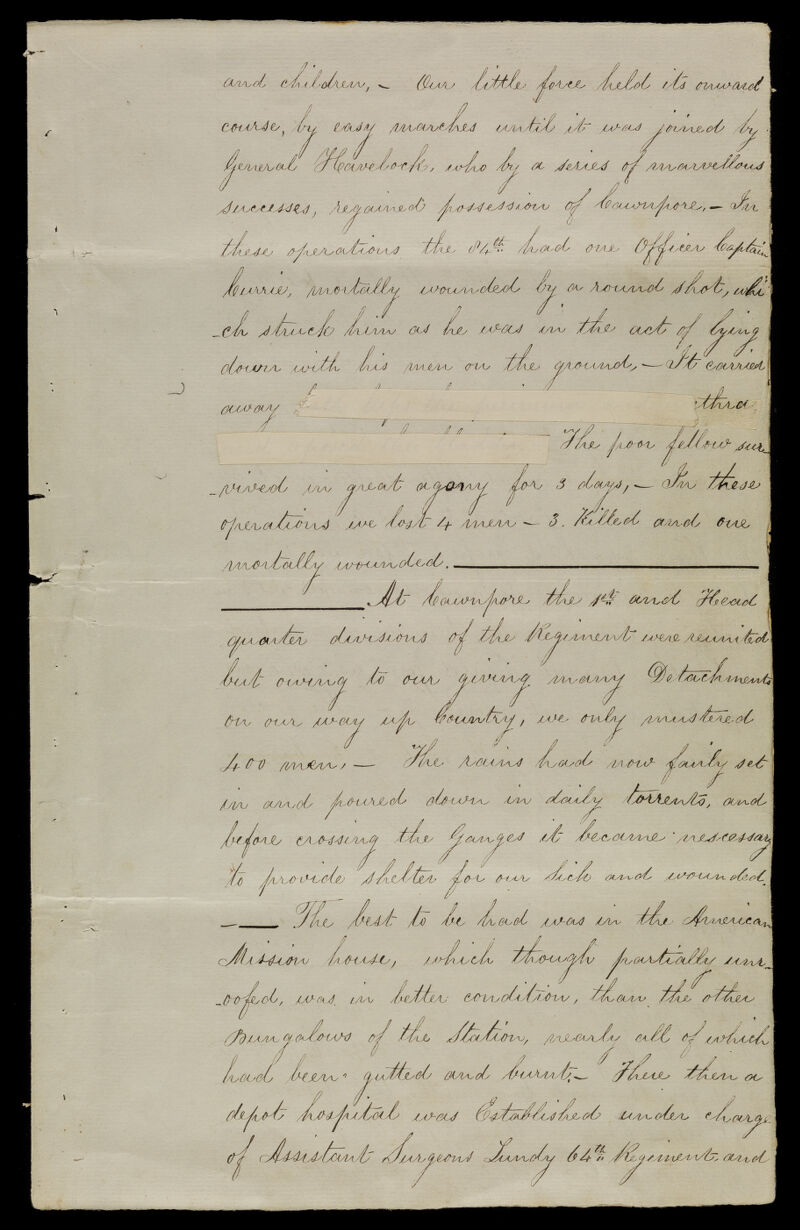 and children, – Our little force held its onward
course, by easy marches until it was joined by
General Havelock, who by a series of marvellous
successes, regained possession of Cawnpore, – In
these operations the 84th had one Officer Captain
Currie, mortally wounded by a round shot, whi
-ch struck him as he was in the act of lying
down with his men on the ground, – It carried
away
The poor fellow sur-
-vived in great agony for 3 days, – In these
operations we lost 4 men – 3. Killed and one
mortally wounded. ———
——— At Cawnpore the 1st and Head
quarter divisions of the Regiment were reunited
but owing to our giving many Detachments
on our way up Country, we only mustered
400 men, – The rains had now fairly set
in and poured down in daily torrents, and
before crossing the Ganges it became nescessary
to provide shelter for our Sick and wounded.
—— The best to be had was in the American
Mission house, which though partially unr-
-oofed, was in better condition, than the other
Bungalows of the Station, nearly all of which
had been gutted and burnt. – There then a
depot hospital was Established under charge
of Assistant Surgeons Lundy 64th Regiment and